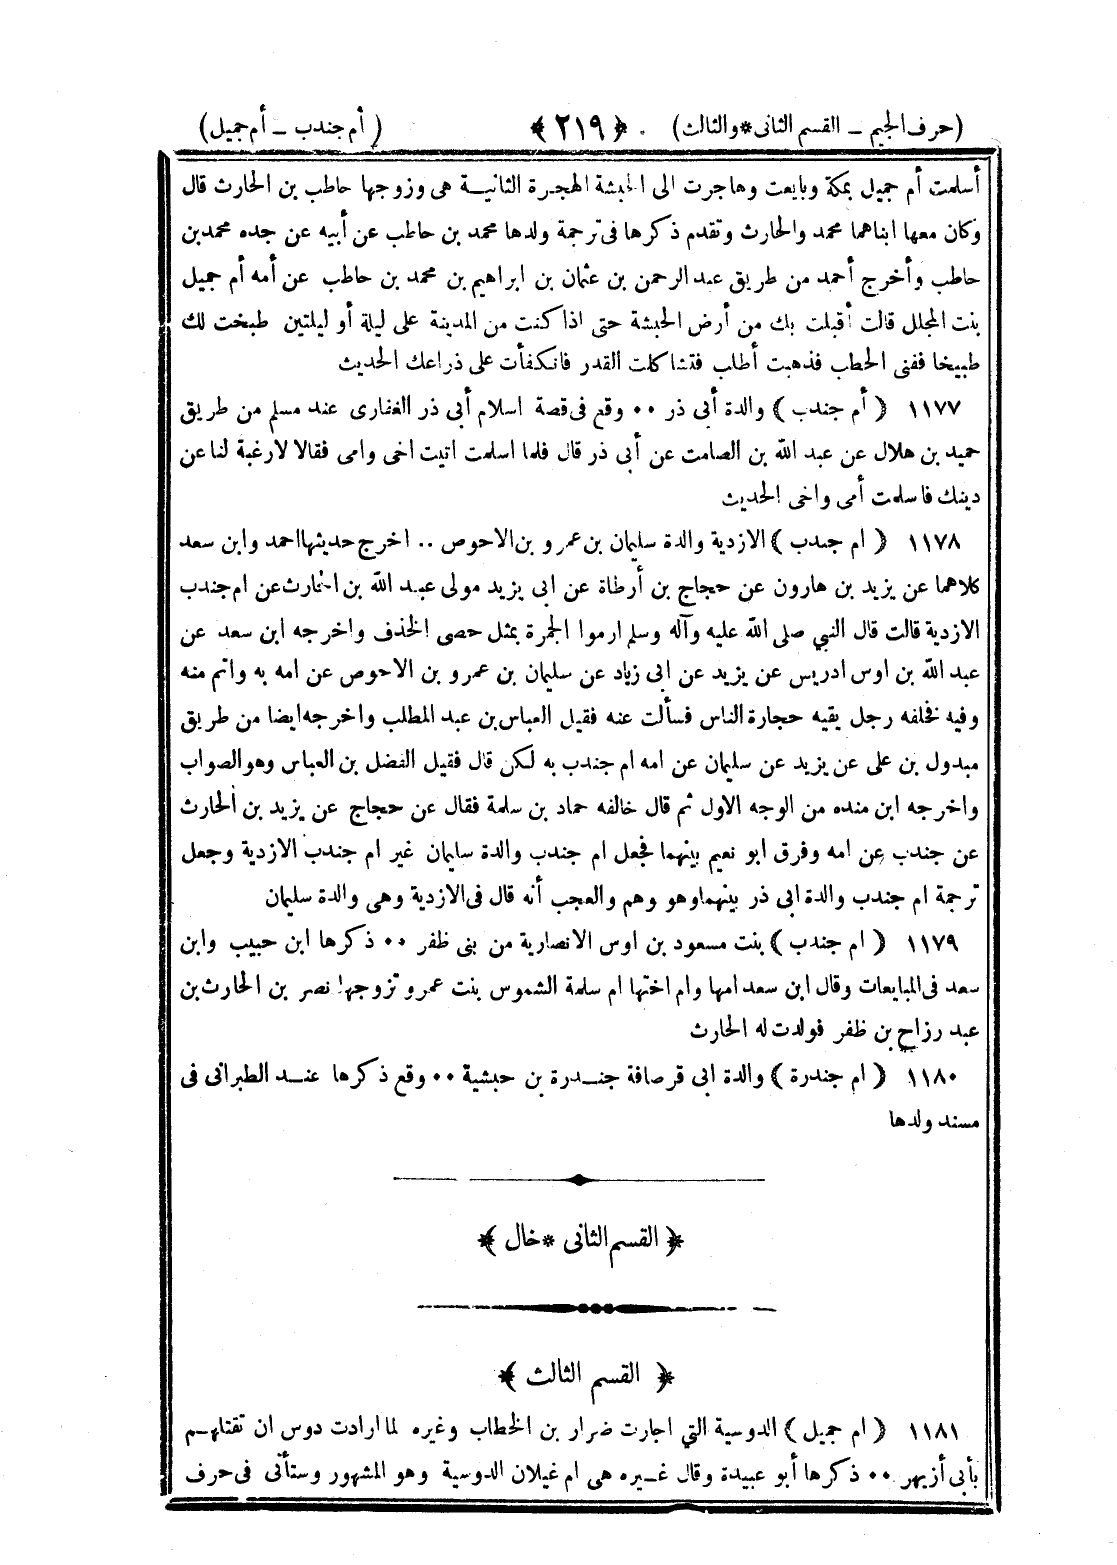 (حرف الجيم – القسم الثانى * والثالث) ﴿ ٢١٩ ﴾ (أم جندب – أم جميل)
أسلمت أم جميل بمكة وبايعت وهاجرت الى الحبشة الهجرة الثانيـة هى وزوجها حاطب بن الحارث قال
وكان معها ابناهما محمد والحارث وتقدم ذكرها فى ترجمة ولدها محمد بن حاطب عن أبيه عن جده محمد بن
حاطب وأخرج أحمد من طريق عبد الرحمن بن عثمان بن ابراهيم بن محمد بن حاطب عن أمه أم جميل
بنت المجلل قالت أقبلت بك من أرض الحبشة حتى اذا كنت من المدينة على ليلة أو ليلتين طبخت لك
طبيخا ففنى الحطب فذهبت أطلب فتشاكلت القدر فانكفأت على ذراعك الحديث
١١٧٧ ( أم جندب ) والدة أبى ذر ٠٠ وقع فى قصة اسلام أبى ذر الغفارى عند مسلم من طريق
حميد بن هلال عن عبد الله بن الصامت عن أبى ذر قال فلما اسلمت اتيت اخى وامى فقالا لا رغبة لنا عن
دينك فاسلمت أمى واخى الحديث
١١٧٨ ( ام جندب ) الازدية والدة سليمان بن عمرو بن الاحوص .. اخرج حديثها احمد وابن سعد
كلاهما عن يزيد بن هارون عن حجاج بن أرطاة عن ابى يزيد مولى عبد الله بن الحارث عن ام جندب
الازدية قالت قال النبي صلى الله عليه وآله وسلم ارموا الجمرة بمثل حصى الخذف واخرجه ابن سعد عن
عبد الله بن اوس ادريس عن يزيد عن ابى زياد عن سليمان بن عمرو بن الاحوص عن امه به واتم منه
وفيه فخلفه رجل يقيه حجارة الناس فسألت عنه فقيل العباس بن عبد المطلب واخرجه ايضا من طريق
مبدول بن على عن يزيد عن سليمان عن امه ام جندب به لكن قال فقيل الفضل بن العباس وهو الصواب
واخرجه ابن منده من الوجه الاول ثم قال خالفه حماد بن سلمة فقال عن حجاج عن يزيد بن الحارث
عن جندب عن امه وفرق ابو نعيم بينهما فجعل ام جندب والدة سليمان غير ام جندب الازدية وجعل
ترجمة ام جندب والدة ابى ذر بينهما وهو وهم والعجب أنه قال فى الازدية وهى والدة سليمان
١١٧٩ ( ام جندب ) بنت مسعود بن اوس الانصارية من بنى ظفر ٠٠ ذكرها ابن حبيب وابن
سعد فى المبايعات وقال ابن سعد امها وام اختها ام سلمة الشموس بنت عمرو تزوجها نصر بن الحارث بن
عبد رزاح بن ظفر فولدت له الحارث
١١٨٠ ( ام جندرة ) والدة ابى قرصافة جنـدرة بن حبشية ٠٠ وقع ذكرها عنـد الطبرانى فى
مسند ولدها
﴿ القسم الثانى * خال ﴾
﴿ القسم الثالث ﴾
١١٨١ ( ام جميل ) الدوسية التي اجارت ضرار بن الخطاب وغيره لما ارادت دوس ان تقتلهـم
بأبى أزيهر ٠٠ ذكرها أبو عبيدة وقال غـيره هى ام غيلان الدوسية وهو المشهور وستأتى فى حرف